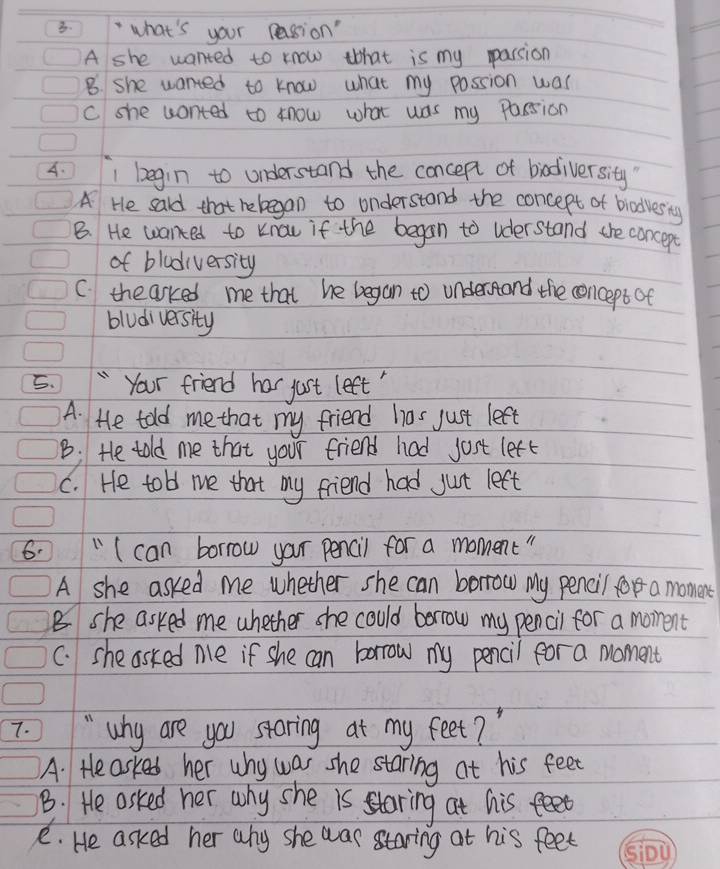 3. "what's your Passion"
A she wanted to know what is my passion
B. she wanted to know what my passion was
C she wanted to know what was my Passion
4. "i begin to understand the concept of biodiversity"
A He said that he began to understand the concept of biodivesity
B. He wanted to know if the began to uderstand the concept
of bludiversity
C. the asked me that he began to understand the concept of
bludiversity
5. "Your friend has just left"
A. He told me that my friend has just left
B. He told me that your friend had just left
C. He told me that my friend had jut left
6. "I can borrow your pencil for a moment"
A she asked me whether she can borrow my pencil for a moment
B she asked me whether she could borrow my pencil for a moment
C. she asked me if she can borrow my pencil for a moment
7. "why are you staring at my feet?"
A. He asked her why was she staring at his feet
B. He asked her why she is staring at his feet
C. He asked her why she was staring at his feet
SiDU